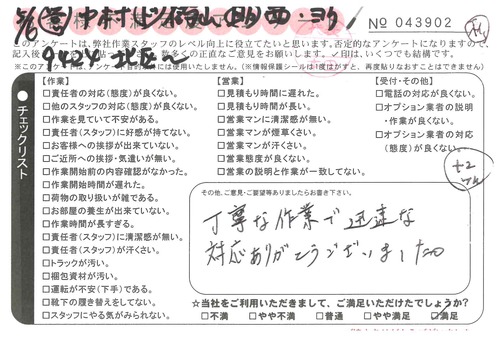 No 043902
このアンケートは、弊社作業スタッフのレベル向上に役立てたいと思います。否定的なアンケートになりますので、
※このアンケートは、アンケート目的以外には使用いたしません。(※情報保護シールは1度はがすと、再度貼りなおすことはできません)
チェックリスト
【作業】
□責任者の対応(態度)が良くない。
□他のスタッフの対応(態度)が良くない。
□作業を見ていて不安がある。
□責任者(スタッフ)に好感が持てない。
□お客様への挨拶が出来ていない。
□ご近所への挨拶・気遣いが無い。
□作業開始前の内容確認がなかった。
□作業開始時間が遅れた。
□荷物の取り扱いが雑である。
□お部屋の養生が出来ていない。
□作業時間が長すぎる。
□責任者(スタッフ)に清潔感が無い。
□責任者(スタッフ)が汗くさい。
□トラックが汚い。
□梱包資材が汚い。
□運転が不安(下手)である。
□靴下の履き替えをしてない。
□スタッフにやる気がみられない。
【営業】
□見積もり時間に遅れた。
□見積もり時間が長い。
□営業マンに清潔感が無い。
□営業マンが煙草くさい。
□営業マンが汗くさい。
□営業態度が良くない。
□営業の説明と作業が一致してない。
【受付・その他】
□電話の対応が良くない。
□オプション業者の説明
・作業が良くない。
□オプション業者の対応
(態度)が良くない。
その他、ご意見・ご要望等ありましたらお書き下さい。
丁寧な作業で迅速な
対応ありがとうございました
☆当社をご利用いただきまして、ご満足いただけたでしょうか?
□不満 □やや不満 □普通 □やや満足 ☑満足